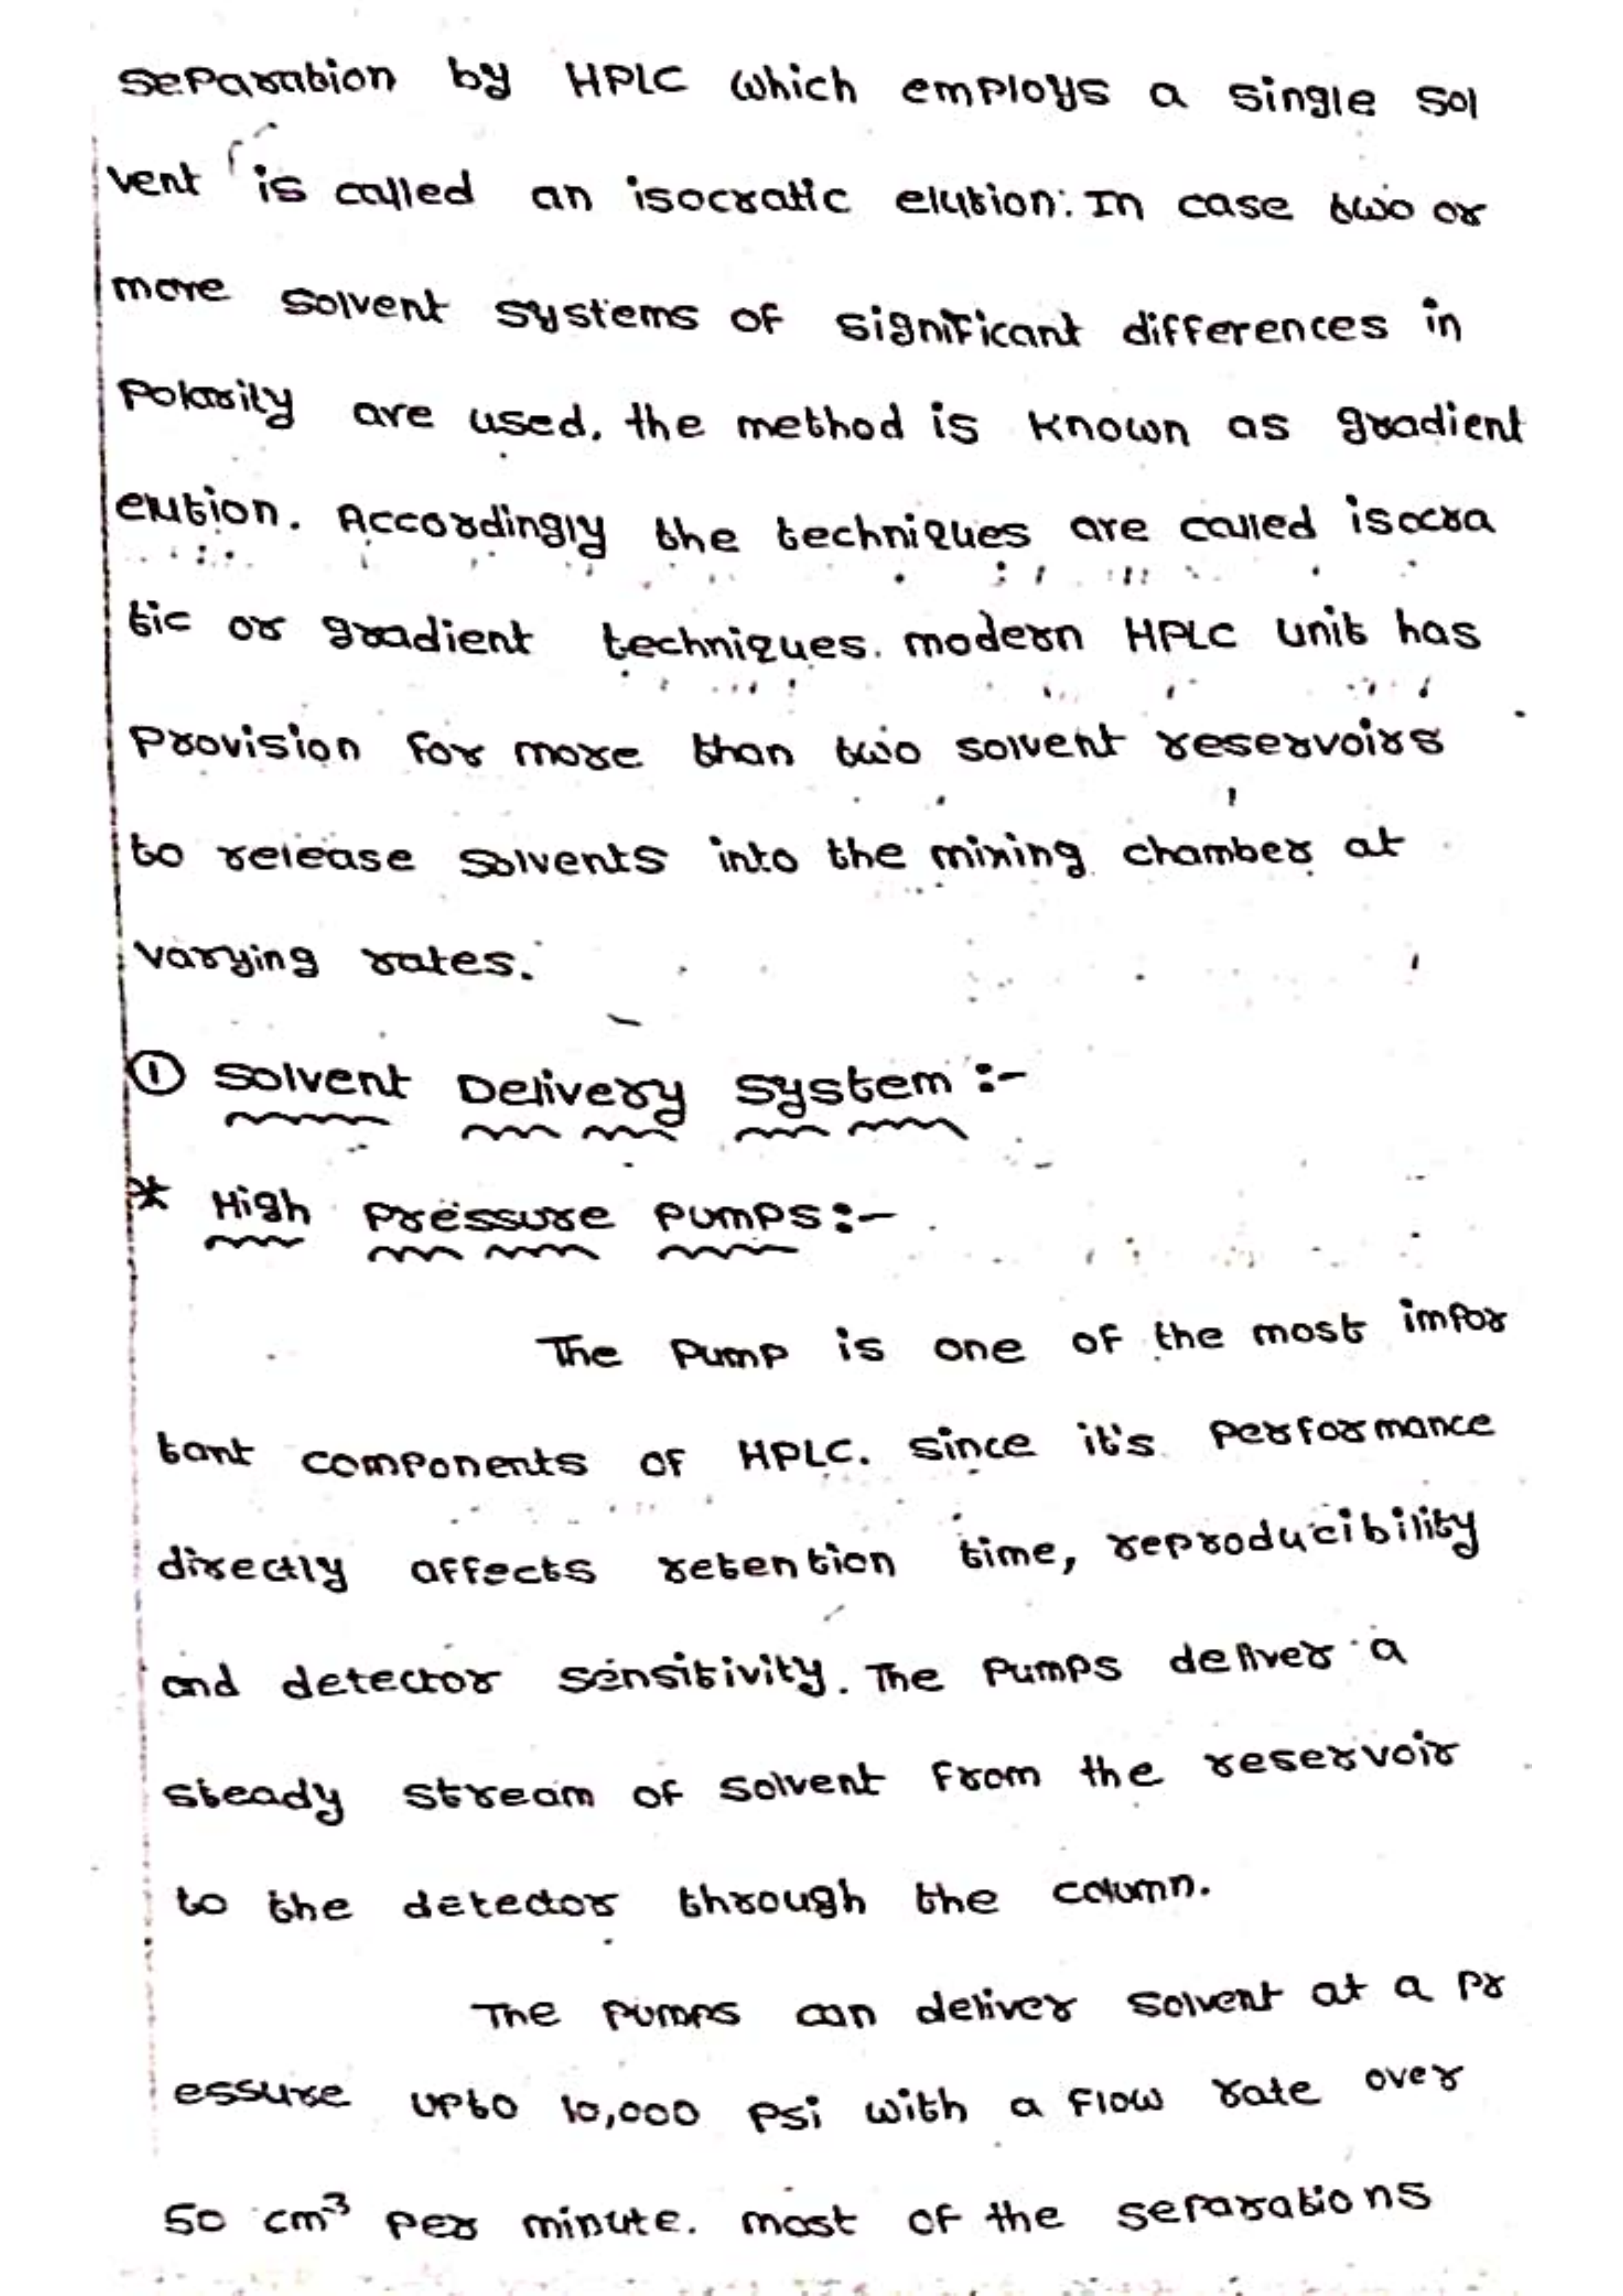 Separation by HPLC which employs a single sol
vent is called an isocratic elution. In case two or
more solvent systems of significant differences in
Polarity are used, the method is known as gradient
elution. Accordingly the techniques are called isocra
tic or gradient techniques. modern HPLC unit has
Provision for more than two solvent reservoirs
to release solvents into the mixing chamber at
varying rates.
① Solvent Delivery System :-
* High Pressure Pumps :-
The Pump is one of the most impor
tant components of HPLC. since it's Performance
directly affects retention time, reproducibility
and detector sensitivity. The Pumps deliver a
steady stream of solvent from the reservoir
to the detector through the column.
The Pumps can deliver solvent at a pr
essure upto 10,000 psi with a flow rate over
50 cm³ per minute. most of the separations